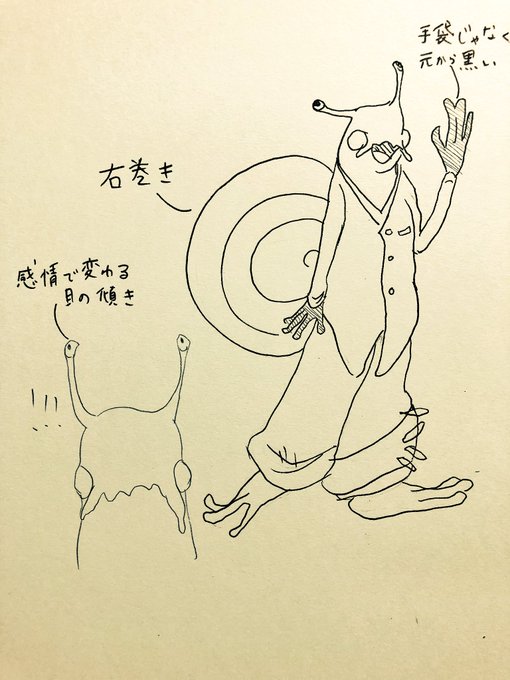 手袋じゃなく
元から黒い
右巻き
感情で変わる
目の傾き
!!!